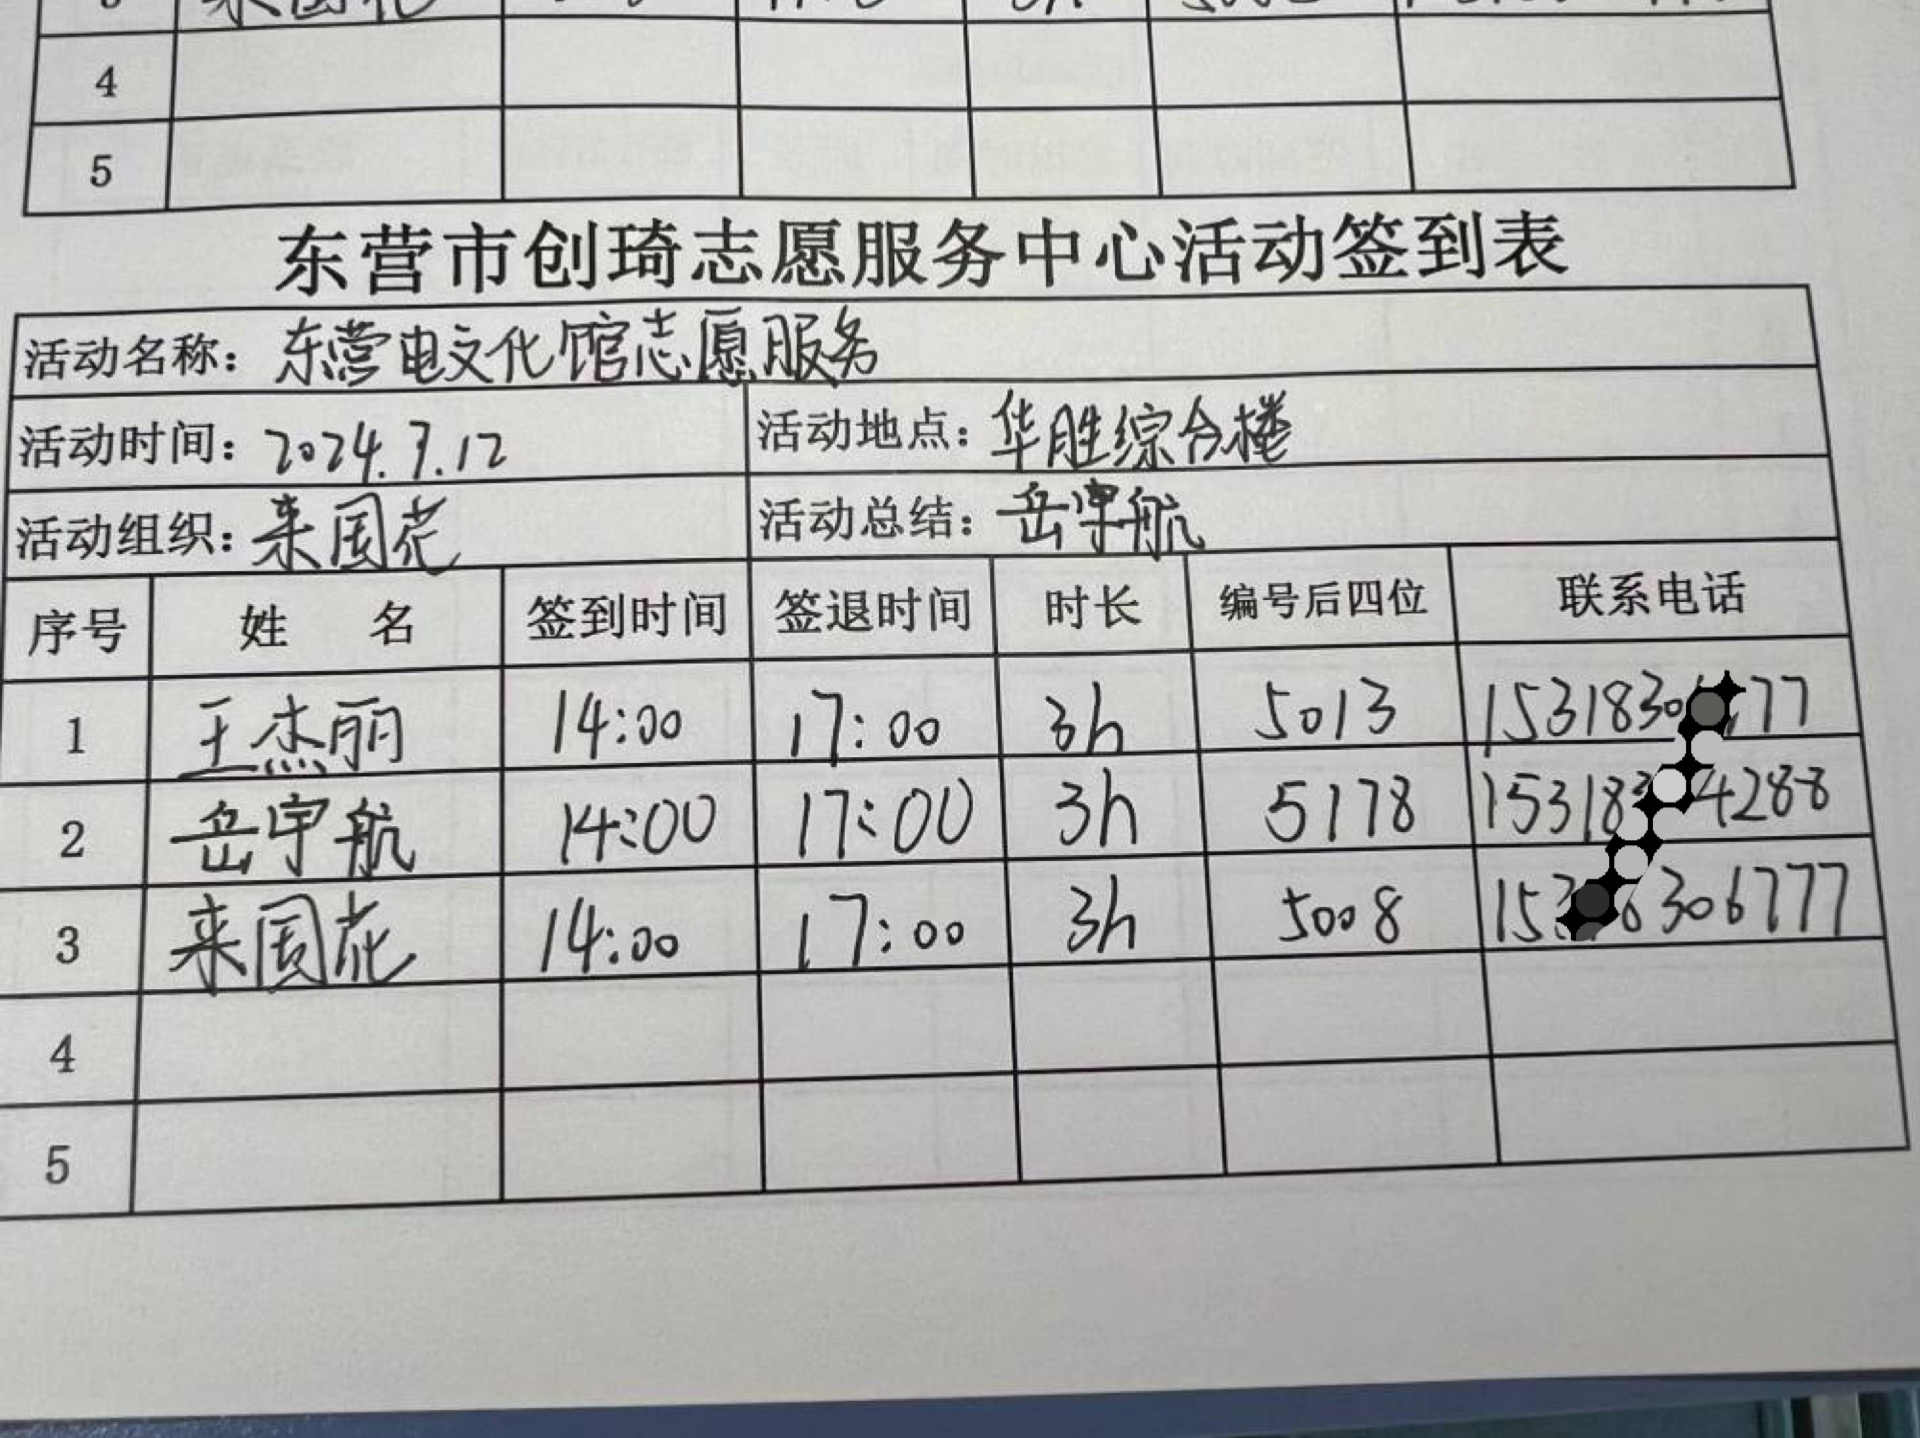 4
5
东营市创琦志愿服务中心活动签到表
活动名称：东营电文化馆志愿服务
活动时间：2024.7.12 活动地点：华胜综合楼
活动组织：来国花 活动总结：岳宇航
序号 姓名 签到时间 签退时间 时长 编号后四位 联系电话
1 王杰丽 14:00 17:00 3h 5013 1531830 77
2 岳宇航 14:00 17:00 3h 5178 15318 4288
3 来国花 14:00 17:00 3h 5008 15 6306777
4
5